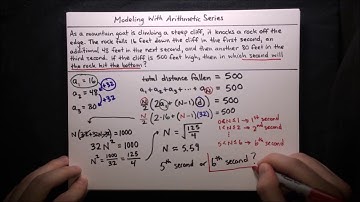 Modeling With Arithmetic Series
As a mountain goat is climbing a steep cliff, it knocks a rock off the
edge. The rock falls 16 feet down the cliff in the first second, an
additional 48 feet in the next second, and then another 80 feet in the
third second. If the cliff is 500 feet high, then in which second will
the rock hit the bottom?
a₁ = 16
+32
a₂ = 48
+32
a₃ = 80
total distance fallen = 500
a₁ + a₂ + a₃ + ... + aₙ = 500
N/2 (2a₁ + (N-1)(d)) = 500
N/2 (2·16 + (N-1)(32)) = 500
= 1000
32N² = 1000
N² = 1000/32 = 125/4
N = √125/4
N ≈ 5.59
5th second or 6th second?
0<N≤1 → 1st second
1<N≤2 → 2nd second
5<N≤6 → 6th second